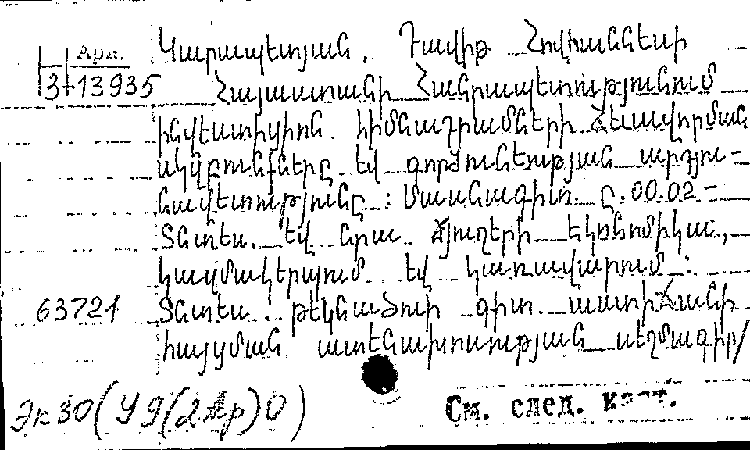 Арм.
3-13935
Կարապետյան, Դավիթ Հովհաննեսի
Հայաստանի Հանրապետությունում
ինվեստիցիոն հիմնադրամների ձևավորման
սկզբունքները և գործունեության արդյու-
նավետությունը : Մասնագիտ. Ը.00.02-
Տնտես. եվ նրա ճյուղերի եկոնոմիկա,
կազմակերպում եվ կառավարում :
63721 Տնտես. թեկնածուի գիտ. աստիճանի
հայցման ատենախոսության սեղմագիր/
Эк30(У9(2Ар)0)
См. след. карт.